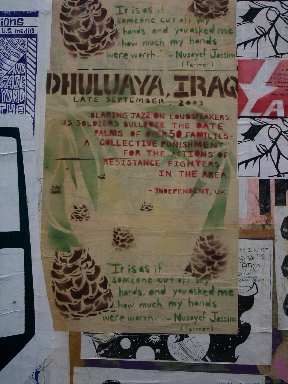 ions
U.S. media
It is as if
someone cut off my
hands and you asked me
how much my hands
were worth. ~ Nusayef Jassim
(farmer)
DHULUAYA, IRAQ
LATE SEPTEMBER 2003
BLARING JAZZ ON LOUDSPEAKERS
US SOLDIERS BULLDOZE THE DATE
PALMS OF OVER 50 FAMILIES-
A COLLECTIVE PUNISHMENT
FOR THE ACTIONS OF
RESISTANCE FIGHTERS
IN THE AREA
- INDEPENDENT, UK
It is as if
someone cut off my
hands and you asked me
how much my hands
were worth. ~ Nusayef Jassim
(farmer)